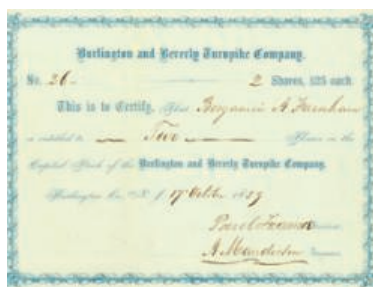 Burlington and Beverly Turnpike Company.
No. 26 2 Shares, $25 each
This is to Certify, That Benjamin A. Farnham
is entitled to Two Shares in the
Capital Stock of the Burlington and Beverly Turnpike Company.
Burlington Co., N.J. 17 1859